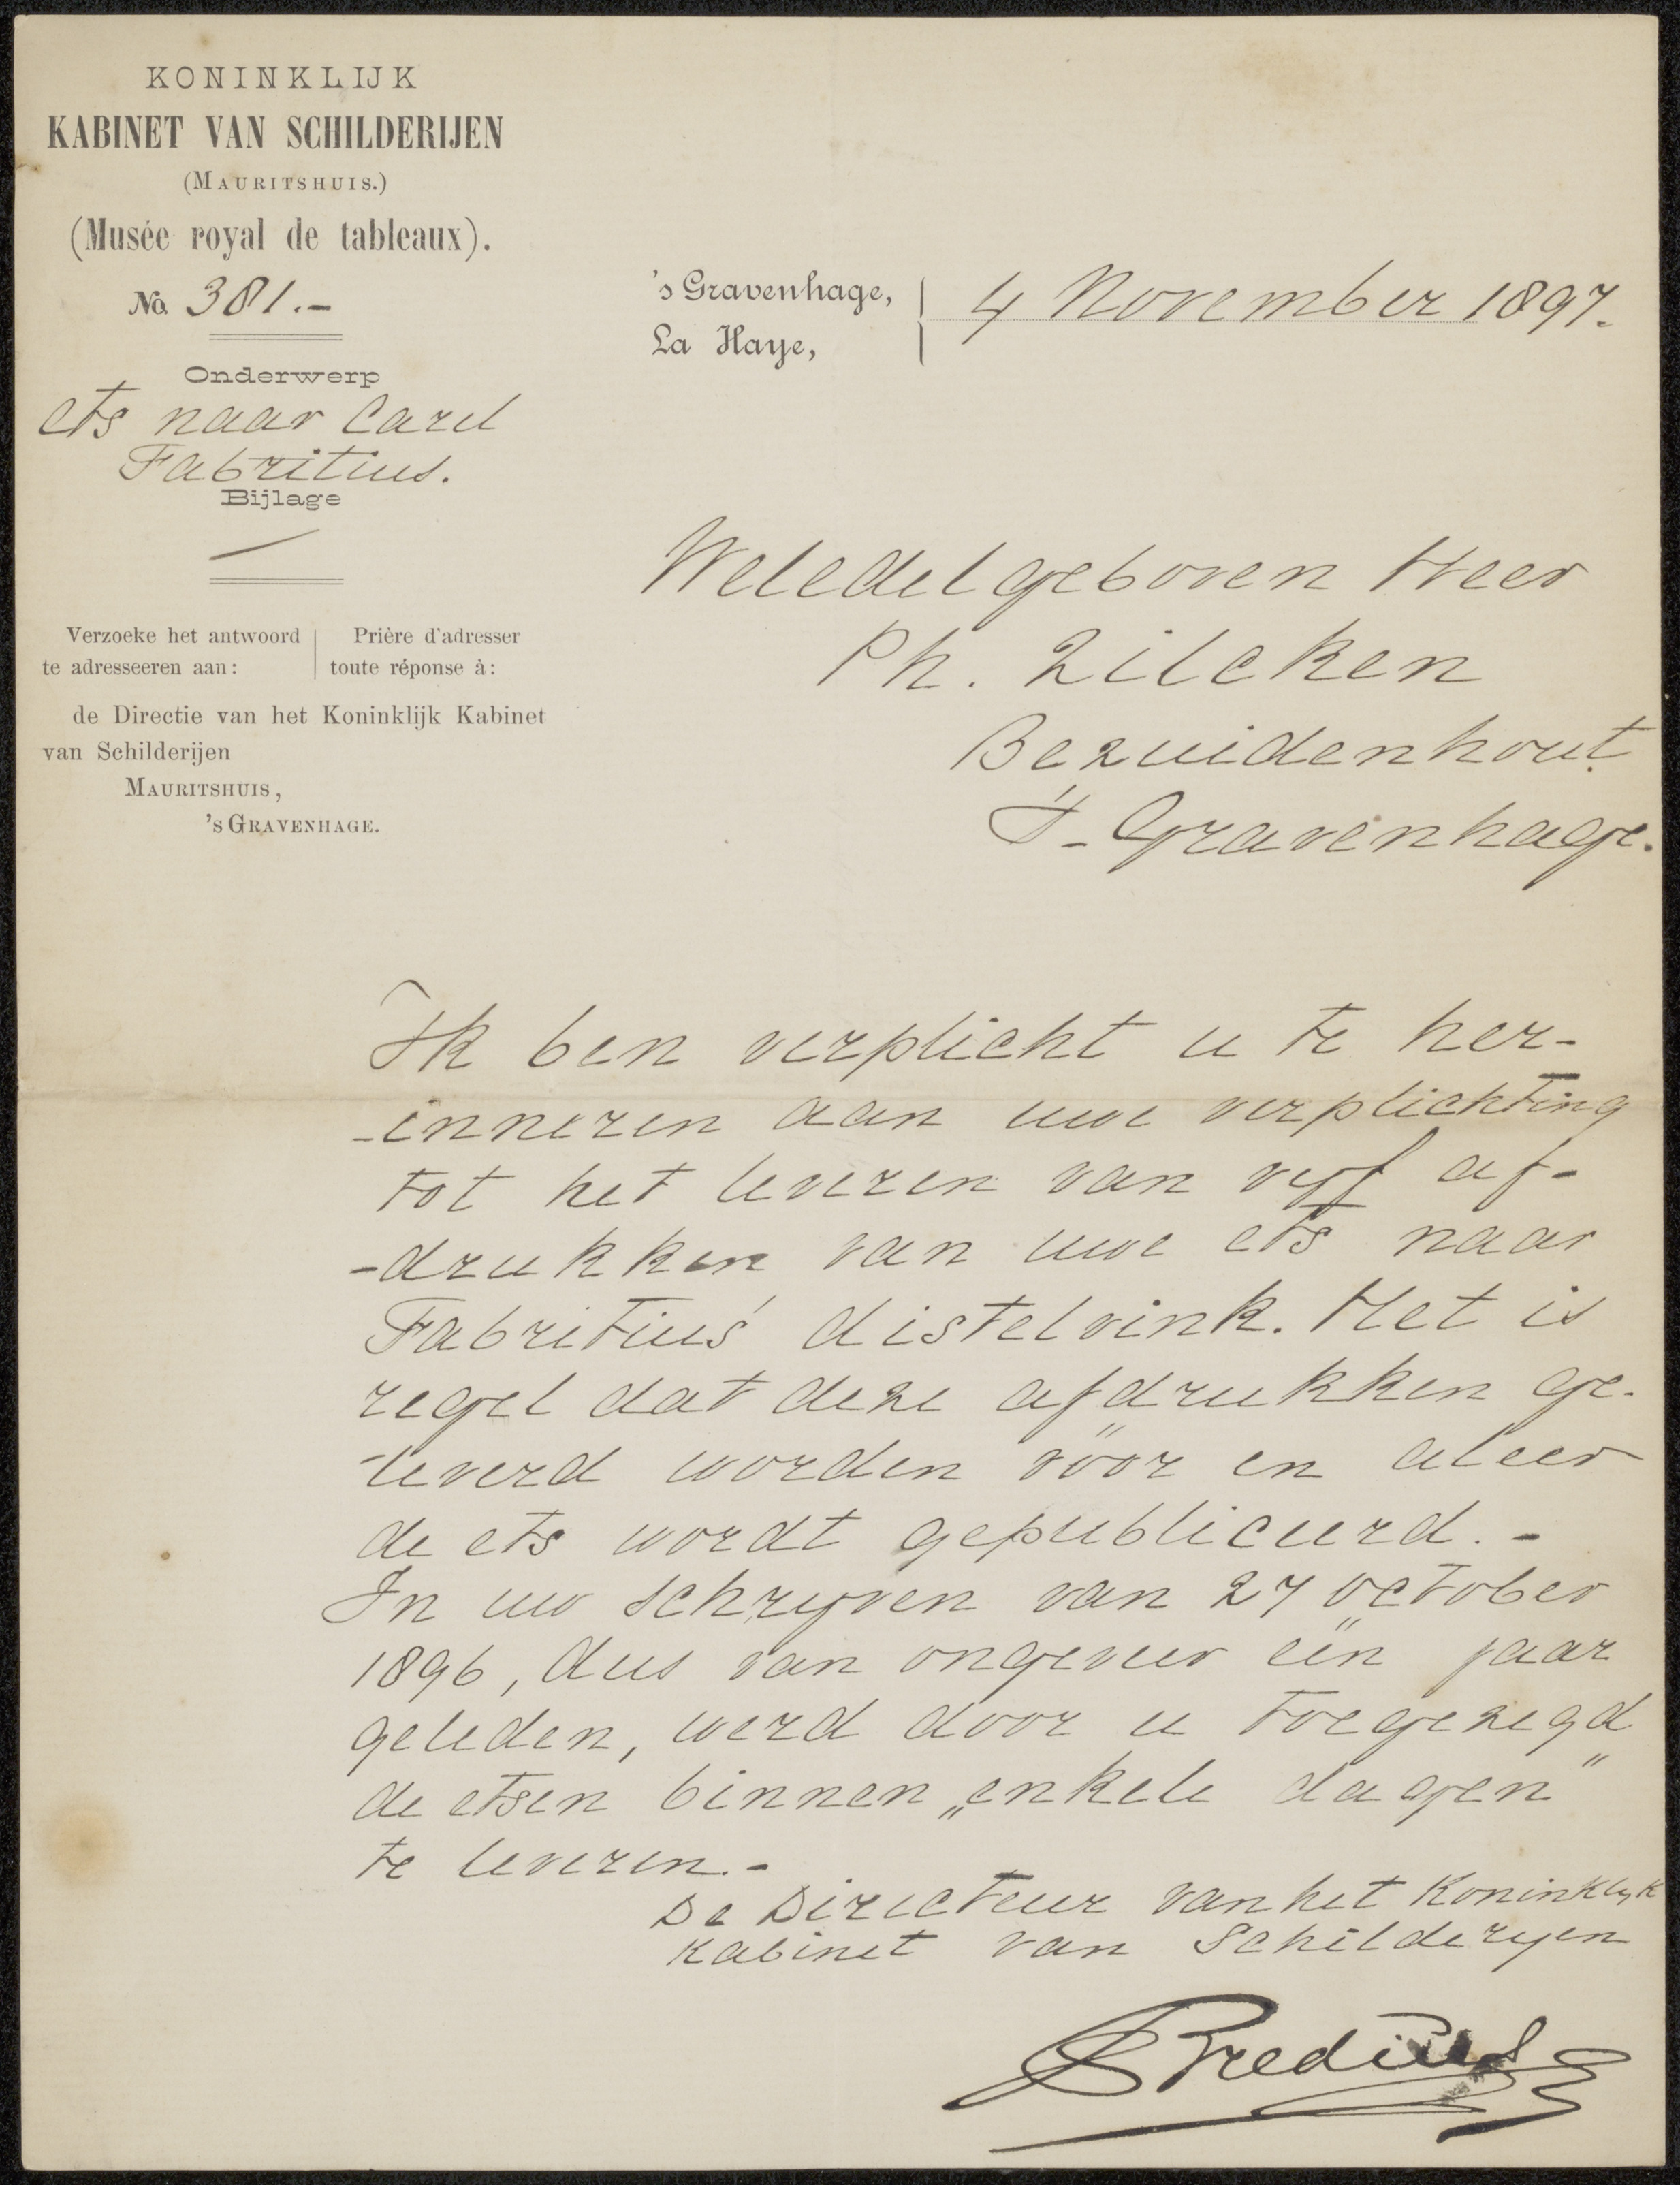 KONINKLIJK
KABINET VAN SCHILDERIJEN
(MAURITSHUIS.)
(Musée royal de tableaux).
No. 381.-
Onderwerp
ets naar Carel
Fabritius.
Bijlage
Verzoeke het antwoord
te adresseeren aan:
Prière d'adresser
toute réponse à:
de Directie van het Koninklijk Kabinet
van Schilderijen
MAURITSHUIS,
'sGRAVENHAGE.
's Gravenhage,
La Haye,
4 November 1897.
Weledelgeboren Heer
Ph. Zilcken
Bezuidenhout
's-Gravenhage.
Ik ben verplicht u te her-
-inneren aan uwe verplichting
tot het leveren van vyf af-
-drukken van uwe ets naar
Fabritius' distelvink. Het is
regel dat deze afdrukken ge-
-leverd worden vöor en aleer
de ets wordt gepubliceerd. -
In uw schryven van 27 October
1896, dus van ongeveer eën jaar
geleden, werd door u toegezegd
de etsen binnen „enkele dagen"
te leveren.-
De Directeur van het Koninklyk
Kabinet van Schilderyen
A Bredius